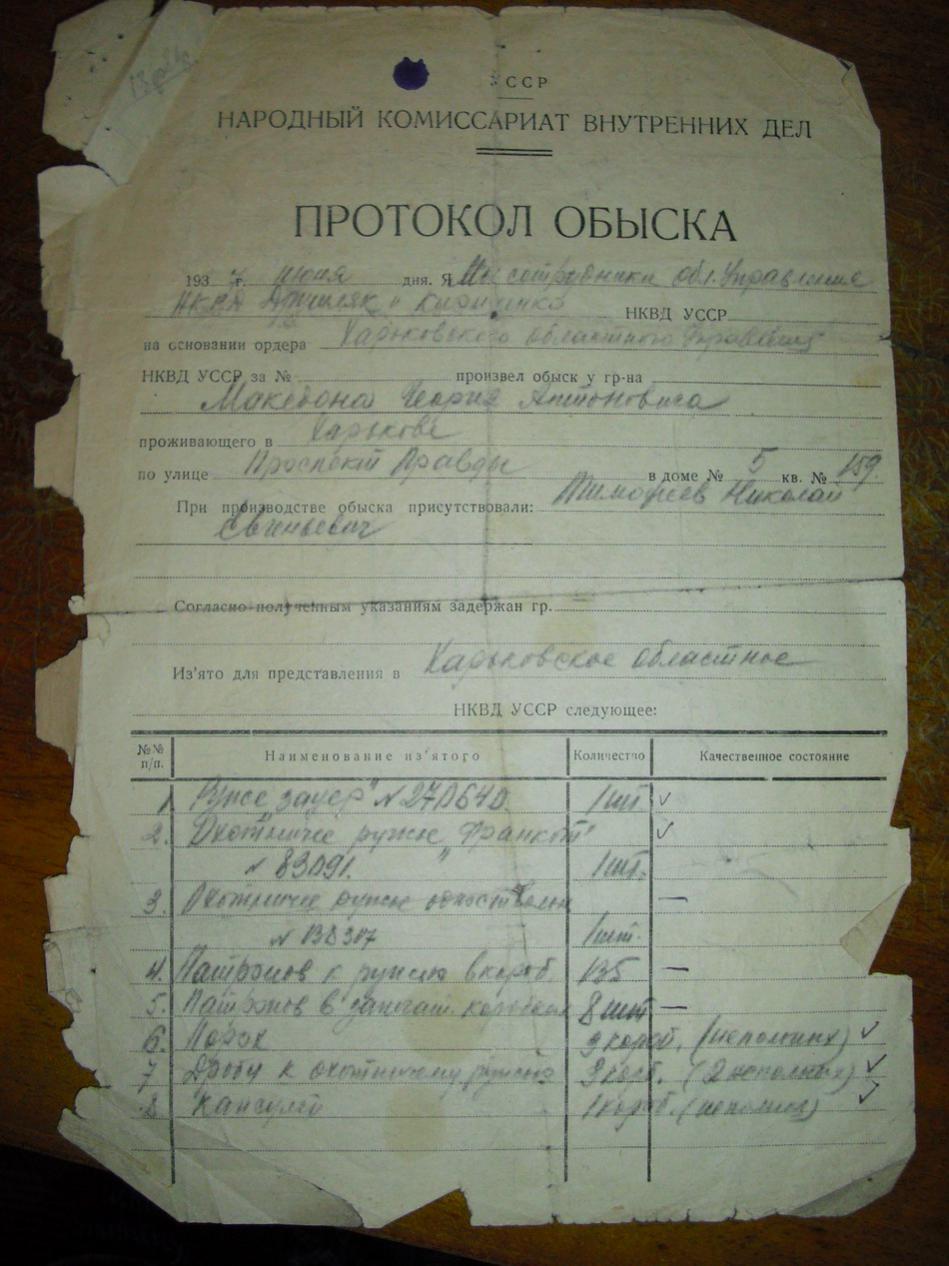 УССР
НАРОДНЫЙ КОМИССАРИАТ ВНУТРЕННИХ ДЕЛ
ПРОТОКОЛ ОБЫСКА
193 г. июня дня. Я Мы сотрудники обл. Управления
НКВД и НКВД УССР
на основании ордера Харьковского областного Управления
НКВД УССР за № произвел обыск у гр-на
Македона Георгия Антоновича
проживающего в Харькове
по улице Проспект Правды в доме № 5 кв. № 159.
При производстве обыска присутствовали: Тимофеев Николай
Евгеньевич
Согласно полученным указаниям задержан гр.
Из'ято для представления в Харьковское областное
НКВД УССР следующее:
№№ п/п. Наименование из'ятого Количество Качественное состояние
1. Ружье "Зауер" № 1 шт.
2. Охотничье ружье "Франкот"
№ 83091. 1 шт.
3. Охотничье ружье
№ 1 шт. —
4. Патронов к ружью в короб. 135 —
5. Патронов в коробках 8 шт —
6. Порох 3 короб. (неполных)
7 Дробь к охотничьему ружью 3 короб. (2 неполных)
8 Капсули 1 короб. (неполная)